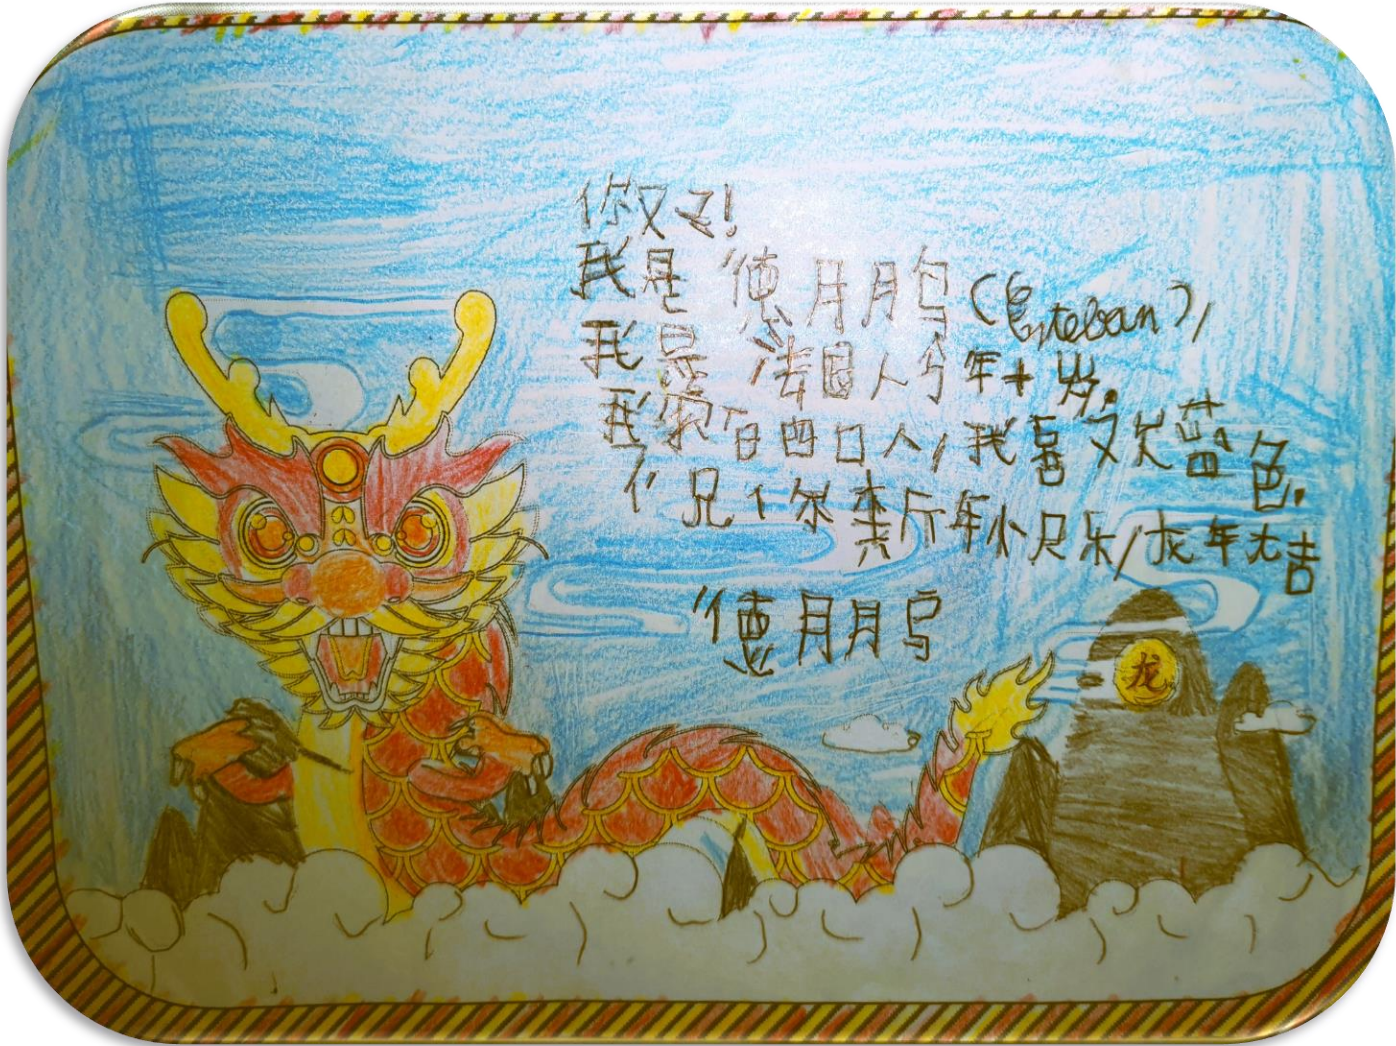 你好!
我是德朋鸟(Esteban),
我是法国人今年十岁.
我家有四口人,我喜欢蓝色.
你兄你新年快乐,龙年大吉
德朋鸟
龙